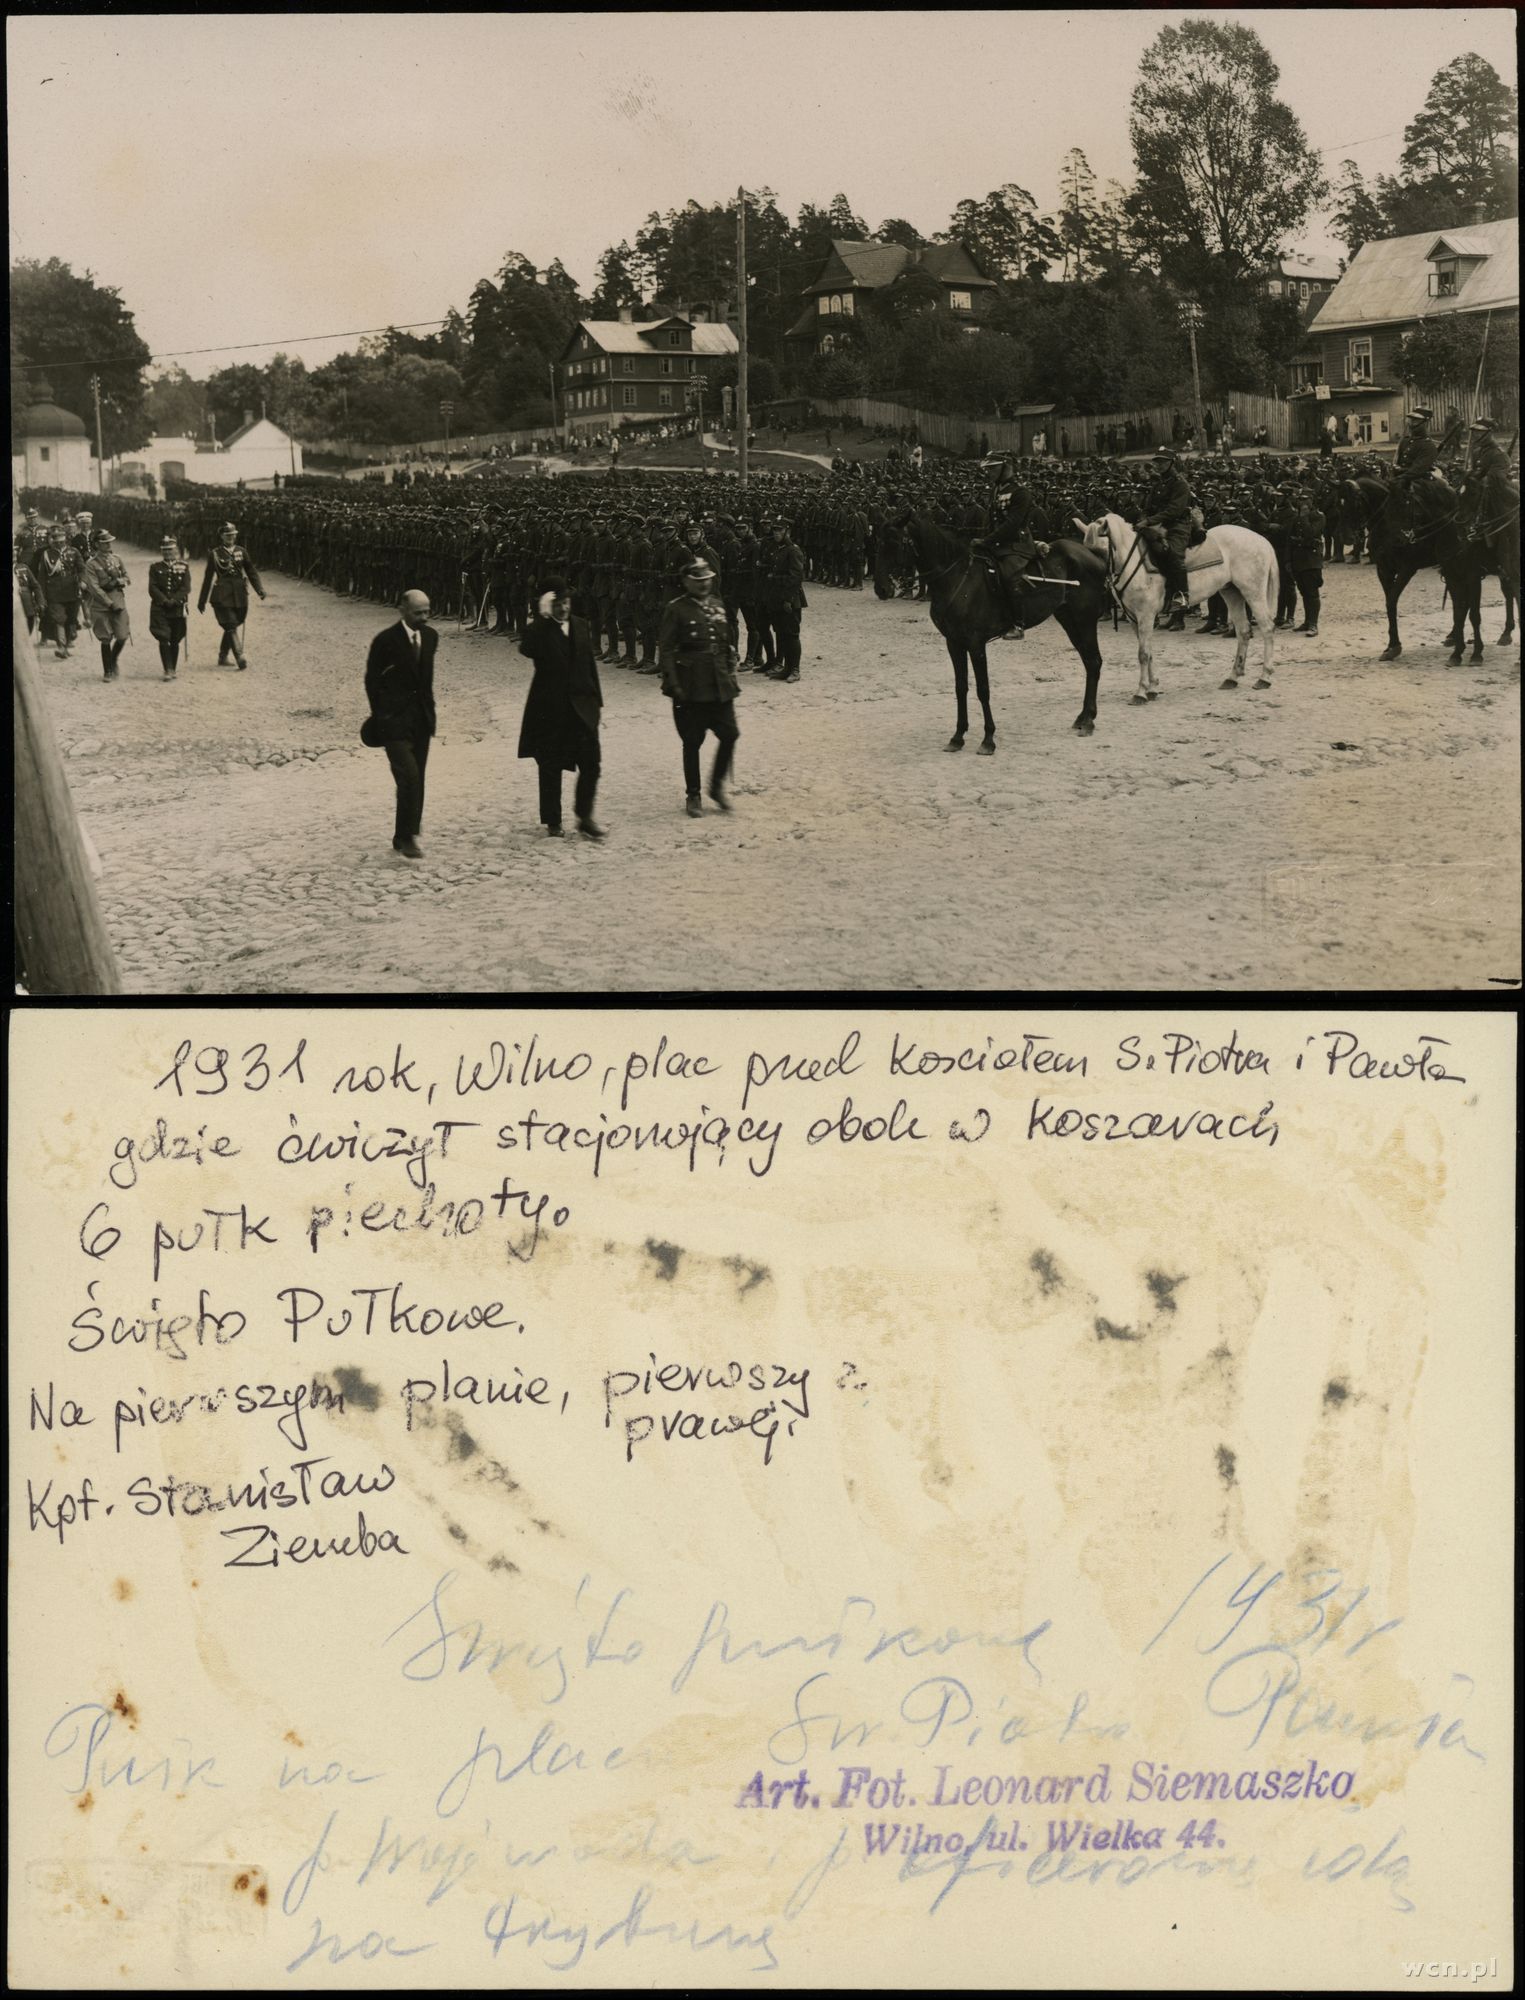 1931 rok, Wilno, plac przed Kościołem S. Piotra i Pawła
gdzie ćwiczył stacjonujący obok w koszarach
6 pułk piechoty.
Święto Pułkowe.
Na pierwszym planie, pierwszy z
prawej.
Kpt. Stanisław
Ziemba
Święto pułkowe 1931 r
Pułk na placu Św. Piotra Pawła
Art. Fot. Leonard Siemaszko
Wilno, ul. Wielka 44.
p. Wojewoda i p. idą
na trybunę
wcn.pl